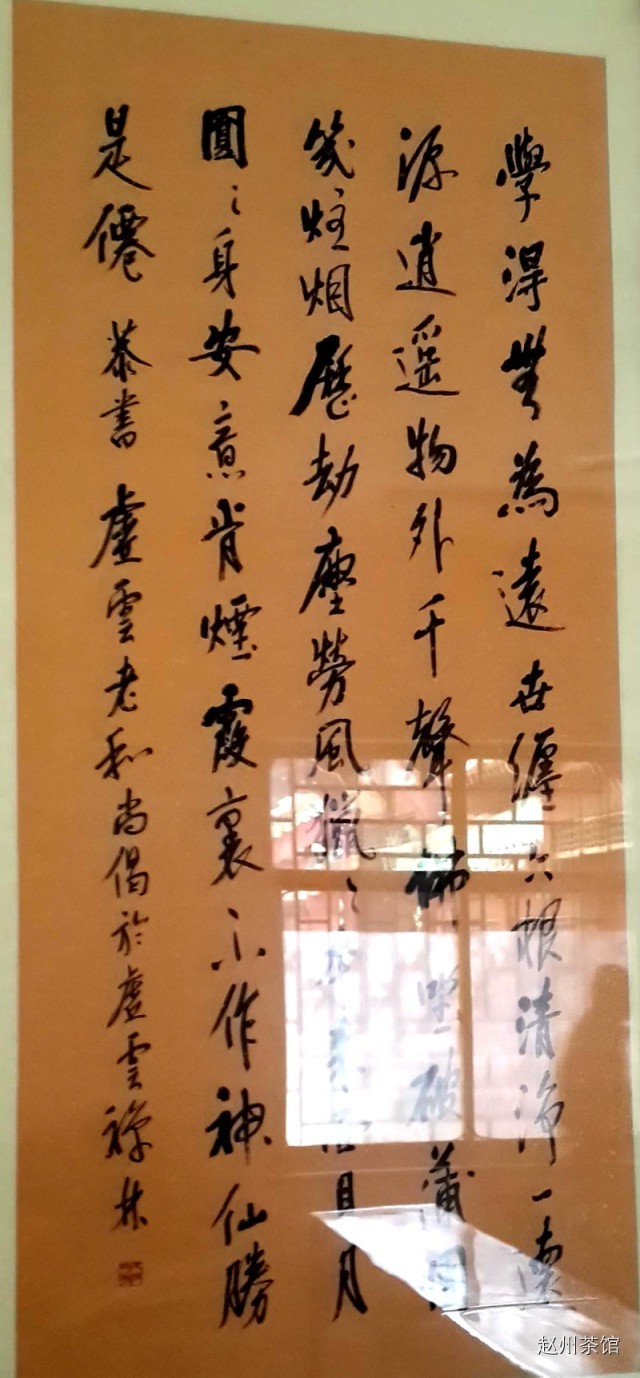 學得無為遠世纏六根清淨一還
源逍遙物外千聲佛坐破蒲團
幾炷烟歷劫塵勞風獵〻目月
圓〻身安意肯煙霞裏不作神仙勝
是僊 恭書 虛雲老和尚偈於虛雲禪林
赵州茶馆